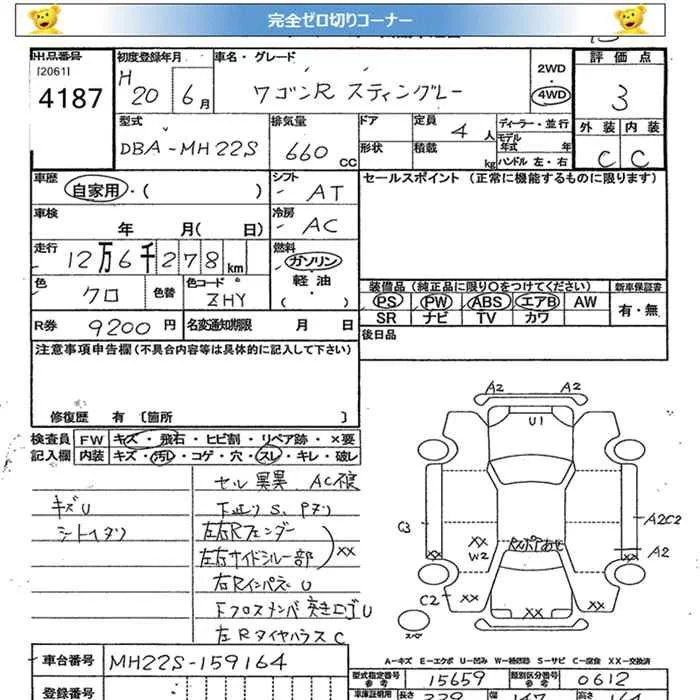 完全ゼロ切りコーナー
出品番号
[2061]
4187
初度登録年月
H 20 年 6 月
車名・グレード
ワゴンR スティングレー
2WD
4WD
評価点
3
外装 内装
C C
型式
DBA-MH22S
排気量
660 CC
ドア
形状
定員 4 人
積載 kg
ディーラー・並行
モデル年式 年
ハンドル 左・右
車歴
自家用・( )
シフト
AT
セールスポイント (正常に機能するものに限ります)
車検
年 月( 日)
冷房
AC
走行
12万6千278km
燃料
ガソリン
軽油
( )
色
クロ
色替
色コード
ZHY
装備品 (純正品に限り〇をつけてください)
PS PW ABS エアB AW
SR ナビ TV カワ
新車保証書
有・無
R券 9200 円
名変通知期限 月 日
後日品
注意事項申告欄 (不具合内容等は具体的に記入して下さい)
修復歴 有 [箇所 ]
検査員記入欄
FW キズ・飛石・ヒビ割・リペア跡・×要
内装 キズ・汚レ・コゲ・穴・スレ・キレ・破レ
セル異異 AC不良
キズU
下廻りS、Pヌリ
シートイタリ
左右Rフェンダー
左右サイドシルー部 XX
右RインパネU
FクロスメンバU
左RタイヤハウスC
A2 A2
U1
C3
A2C2
A2
XX
W2
XX
XX
XX
C2
XX
XX
XX
スペア
A-キズ E-エクボ U-凹み W-補修跡 S-サビ C-腐食 XX-交換済
車台番号 MH22S-159164
型式指定番号 参考 15659
類別区分番号 参考 0612
登録番号
車庫証明用
長さ 339
幅 147
高さ